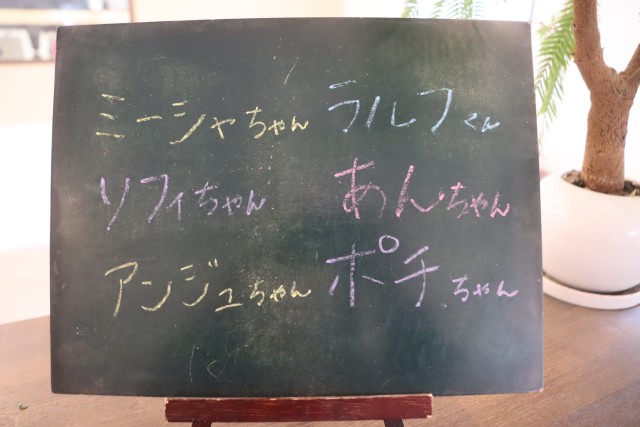 ミーシャちゃん ラルフくん
ソフィちゃん あんちゃん
アンジュちゃん ポチちゃん